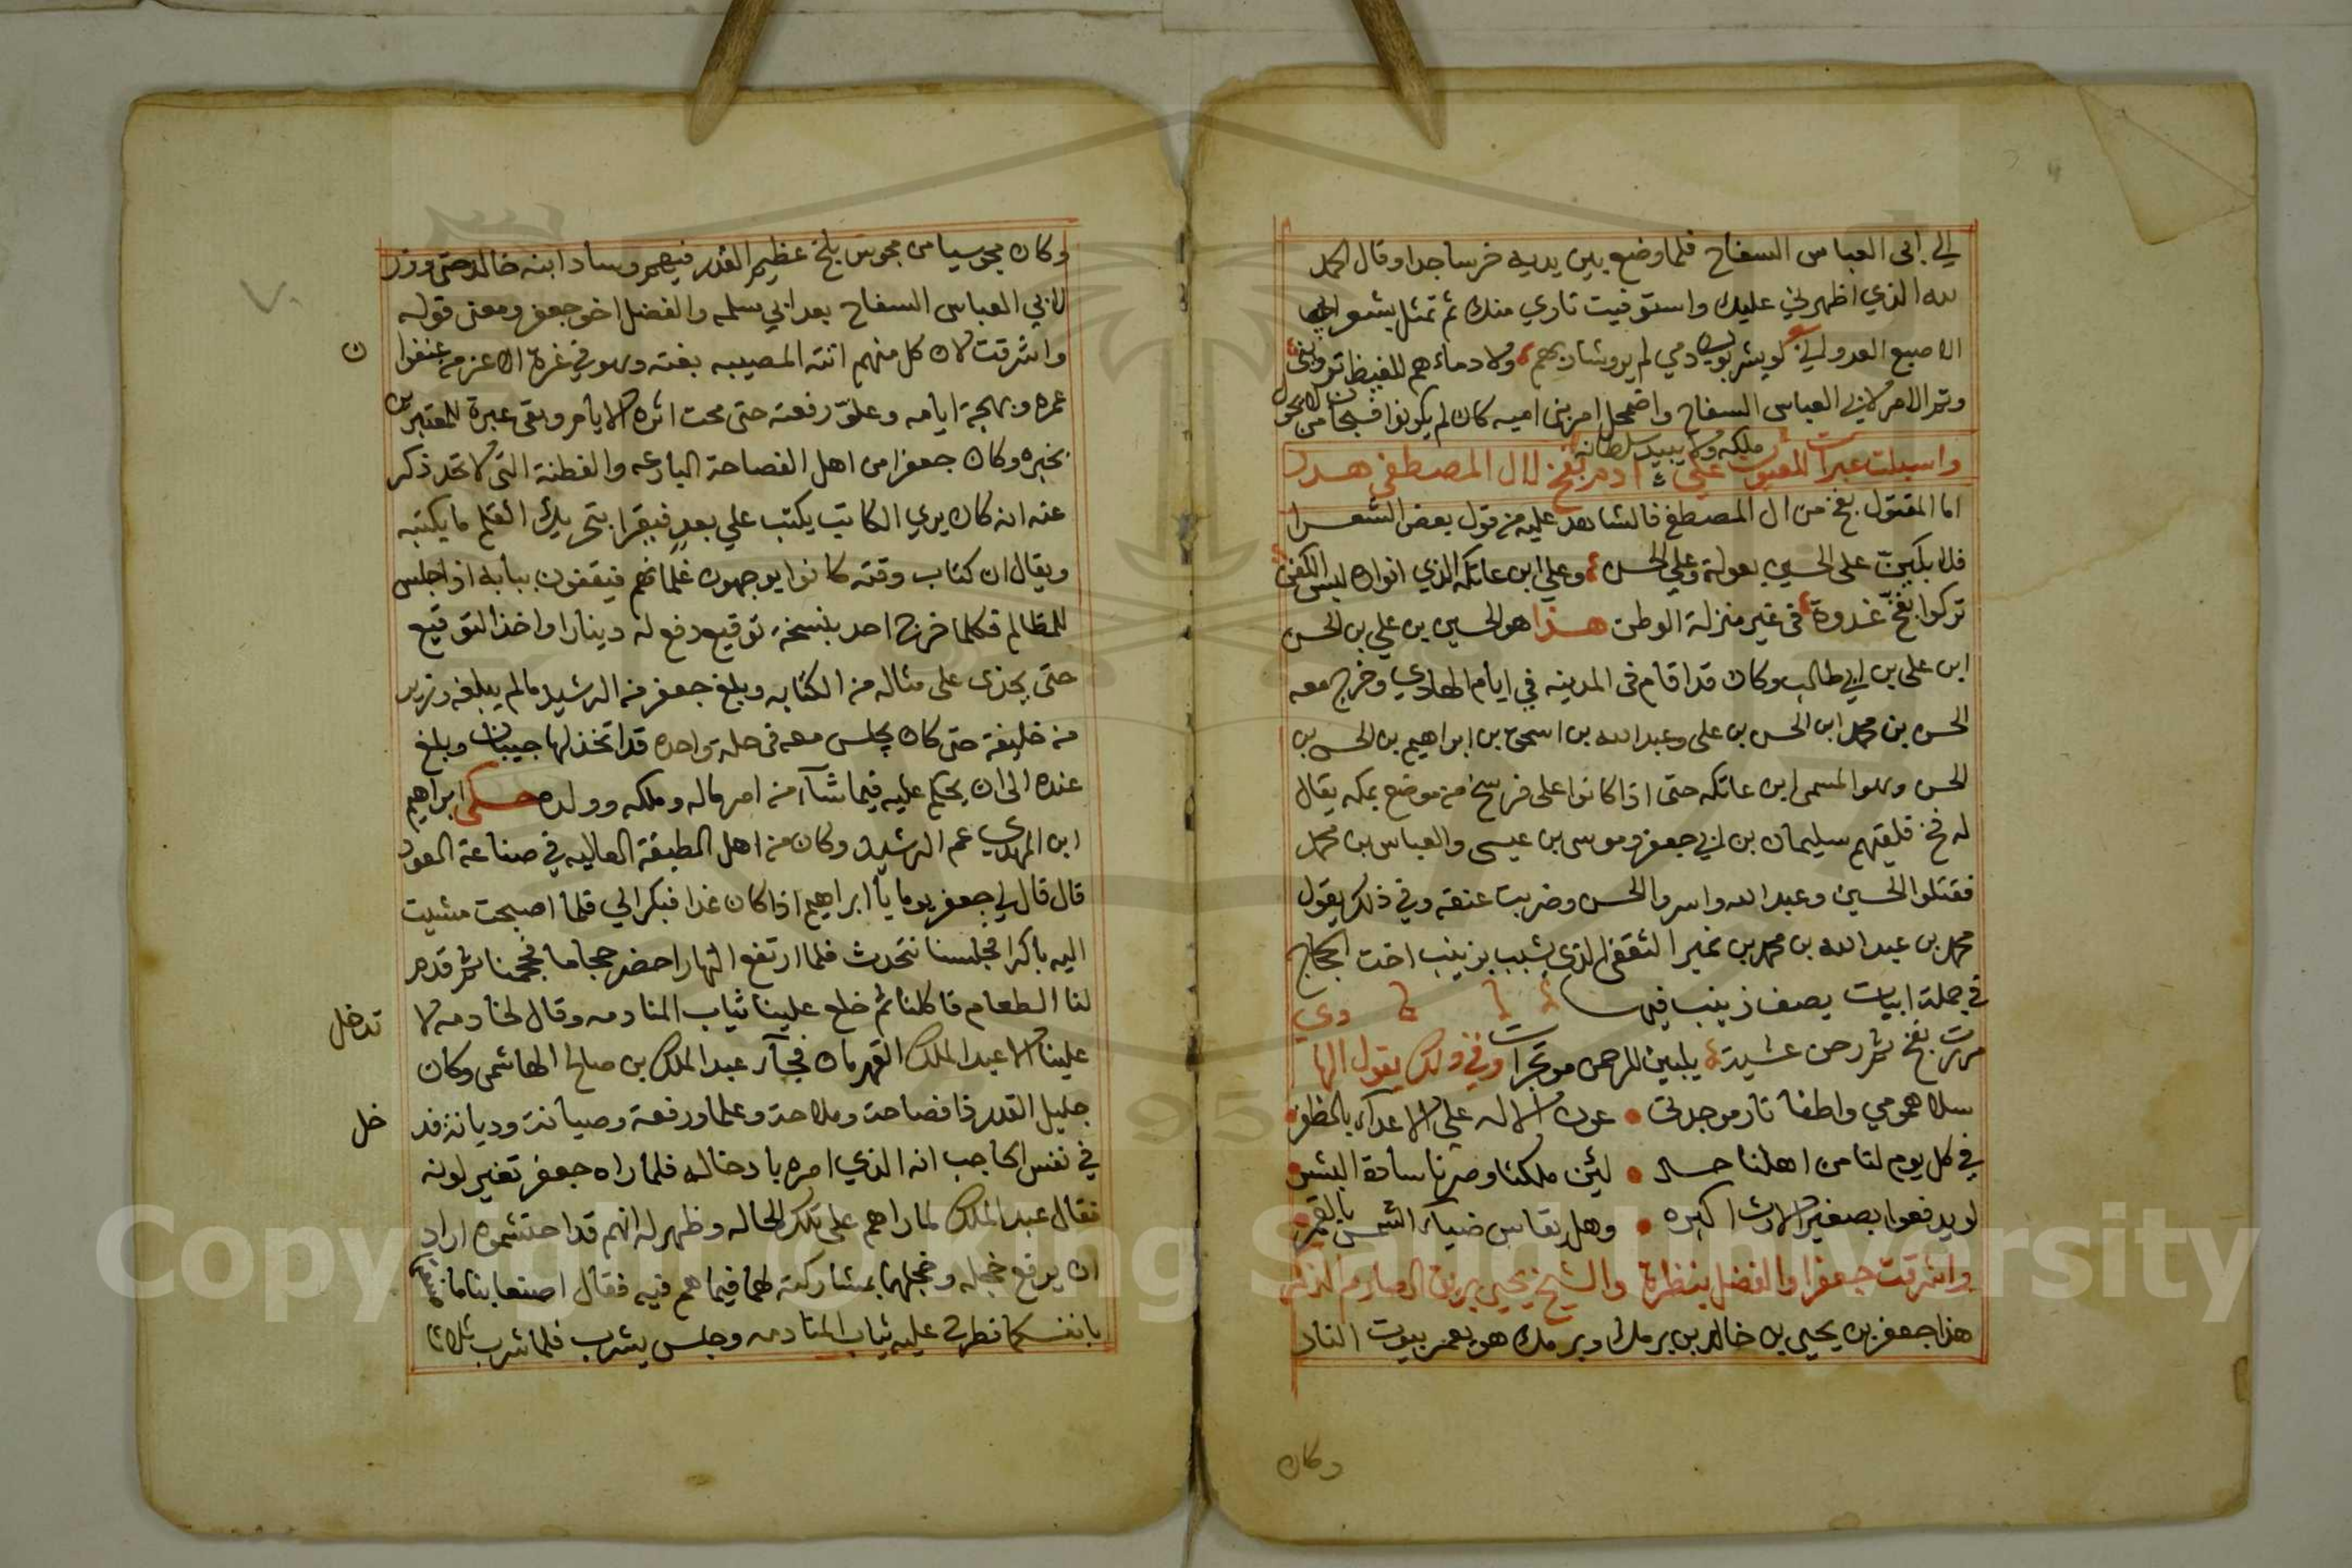 الي ابى العباس السفاح فلما وضع بين يديه خر ساجدا وقال الحمد
لله الذي اظهرني عليك واستوفيت ثاري منك ثم تمثل بشعر
الاصبع العدواني لو يشربون دمي لم يرو شاربهم ولا دماءهم للغيظ ترويني
وتم الامر لابي العباس السفاح واضمحل امر بني اميه كان لم يكونوا فسبحان من لا يحول
ملكه ولا يبيد سلطانه
واسبلت عبرات للعيون على دم بفخ لال المصطفى هدر
اما المقتول بفخ من ال المصطفى فالشاهد عليه من قول بعض الشعرا
فلا بكين على الحسين بعولة وعلي الحسن وعلى ابن عاتكه الذي اثواه ليس الكفن
تركوا بفخ غدوة فى غير منزلة الوطن هذا هو الحسين بن علي بن الحسن
ابن على بن ابي طالب وكان قد اقام فى المدينه في ايام الهادي وخرج معه
الحسن بن محمد ابن الحسن بن على وعبد الله بن اسحق بن ابراهيم بن الحسن بن
الحسن وهو المسمى ابن عاتكه حتى اذا كانوا على فرسخ من موضع بمكه يقال
له فخ فليقتهم سليمان بن ابي جعفر وموسى بن عيسى والعباس بن محمد
فقتلوا الحسين وعبد الله واسر والحسن وضربت عنقه وفي ذلك يقول
محمد بن عبد الله بن محمد بن نمير الثقفى الذي يشبب بزينب اخت الحجاج
في جملة ابيات يصف زينب فيها
مررت بفخ ثم رحن عشية يلبين للرحمن موتجرات وفي ذلك يقول
سلا همومي واطفا نار موجدتى عون الاله على الاعداء بالظفر
في كل يوم لنا من اهلنا حسد لئن ملكنا وصرنا سادة البشر
لو يدفعوا بصغير الارث اكبره وهل يقاس ضياء الشمس بالقمر
واشرقت جعفرا والفضل ينظره والشيخ يحيى بريق الصارم الذكر
هذا جعفر بن يحيى بن خالد بن برمك وبرمك هو يعمر بيوت النار
وكان
وكان مجوسيا من مجوس بلخ عظيم القدر فيهم وساد ابنه خالد حتى وزر
لابي العباس السفاح بعد ابي سلمه والفضل اخو جعفر ومعنى قوله
واشرقت لان كل منهم اتته المصيبه بغته وهو في غرة الاعز من عنفوا ن
عمره وبهجة ايامه وعلو رفعته حتى محت اثره الايام وبقى عبرة للمعتبرين
بخبره وكان جعفرا من اهل الفصاحة البارعه والفطنة التى لا تحد ذكر
عنه انه كان يري الكاتب يكتب علي بعد فيقرا بتحريك القلم ما يكتبه
ويقال ان كتاب وقته كانوا يوجهون غلمانهم فيقفون ببابه اذا جلس
للمظالم فكلما خرج احد بنسخة توقيع دفع له دينارا واخذ التوقيع
حتى يحذى على مثاله من الكتابه وبلغ جعفر من الرشيد مالم يبلغه وزير
من خليفة حتى كان يجلس معه فى حلة واحده قد اتخذ لها جيبان وبلغ
عنده الى ان يحكم عليه فيما شآء من امر ماله وملكه وولده حكى ابراهيم
ابن المهدي عم الرشيد وكان من اهل الطبقة العاليه في صناعة العود
قال قال لي جعفر يوما يا ابراهيم اذا كان غدا فبكر الي فلما اصبحت مشيت
اليه باكرا فجلسنا نتحدث فلما ارتفع النهار احضر حجاما فحجمنا ثم قدم
لنا الطعام فاكلنا ثم خلع علينا ثياب المنادمه وقال لخادمه لا تدخل
علينا الا عبد الملك القهرمان فجآء عبد الملك بن صالح الهاشمى وكان
جليل القدر ذا فصاحة وملاحة وعلما ورفعة وصيانة وديانة فد خل
في نفس الحاجب انه الذي امره بادخاله فلما راه جعفر تغير لونه
فقال عبد الملك لما راهم على تلك الحاله وظهر له انهم قد احتشموه اراد
ان يرفع خجله وخجلهما بمشاركته لهما فيما هم فيه فقال اصنعا بنا ما صنعتما
بانفسكما فطرح عليه ثياب المنادمه وجلس يشرب فلما شرب ثلاثا